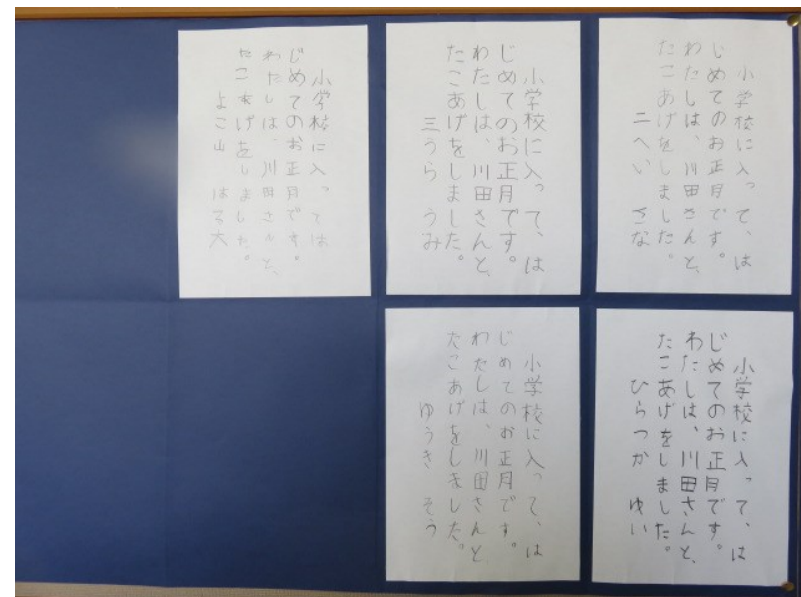 小学校に入って、は
じめてのお正月です。
わたしは、川田さんと、
たこあげをしました。
二へい さな
小学校に入って、は
じめてのお正月です。
わたしは、川田さんと、
たこあげをしました。
三うら うみ
小学校に入っては
じめてのお正月です。
わたしは、川田さんと、
たこあげをしました。
よこ山 はる大
小学校に入って、は
じめてのお正月です。
わたしは、川田さんと、
たこあげをしました。
ひらつか ゆい
小学校に入って、は
じめてのお正月です。
わたしは、川田さんと
たこあげをしました。
ゆうき そう